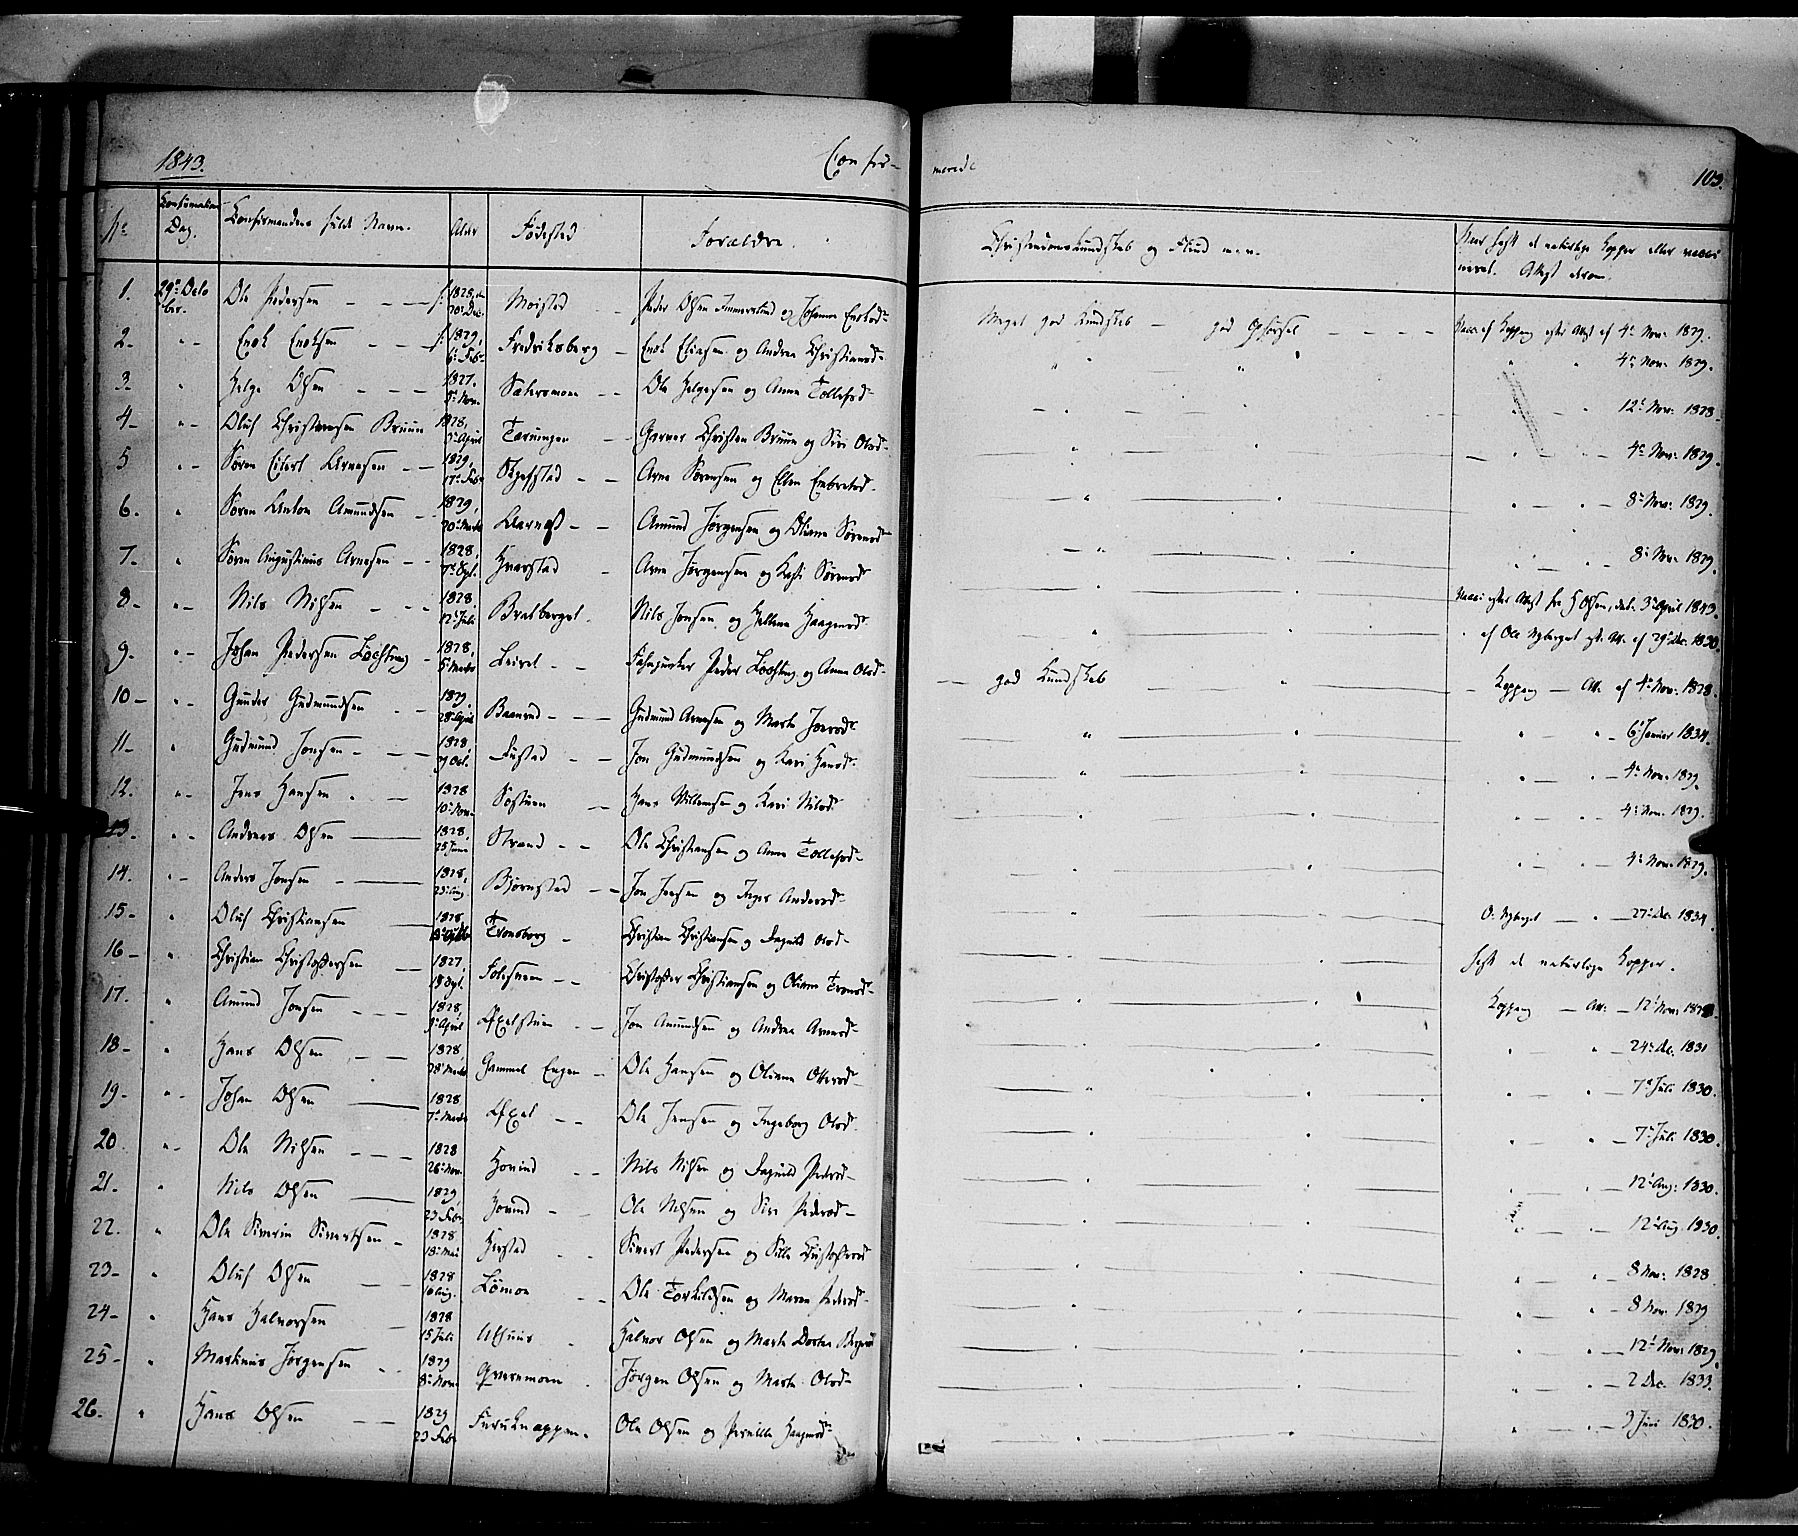 1843. Confir- merede 103.
No Confirmations Dag. Confirmandens fulde Navn. Alder Fødested Forældre. Christendomskundskab og Flid m.v. Naar havt de naturlige Kopper eller vacci
neret. Attest derom.
1. 29de Octo ber. Ole Pedersen f: 1828, 20 Dec. Moistad Peder Olsen og Johanne Enoksd. Meget god Kundskab god Opførsel Vacc. af Koppang efter Attest af 4de Nov. 1829.
2. Enok Enoksen f: 1829, 6 Febr. Fredriksberg Enok Eliasen og Andrea Christiansd. 4de Nov. 1829.
3. Helge Olsen 1827. 5 Nov. Sætersmoen Ole Helgesen og Anne Tollefsd. 12te Nov. 1828
4 Oluf Christiansen Bruun 1828, April Terningen Garver Christen Bruun og Siri Olsd. 4de Nov. 1829.
5 Søren Eilert Arnesen 1829, 17de Feb. Skjefstad Arne Sørensen og Ellen Embretsd. 8de Nov. 1829.
6. Søren Anton Amundsen 1829, 20 Marts Aarnæs Amund Jørgensen og Oliane Sørensd. 8de Nov. 1829.
7. Søren Augustinus Arnesen 1828, 7de Sept. Hvarstad Arne Jørgensen og Kasti Sørensd.
8. Nils Nilsen 1828. 12te Juli Bratberget. Nils Jonsen og Hellene Haagensd. Vacc. efter Attest fra H Olsen, dat. 3die April 1843.
9. Johan Pedersen Løchting 1828, 5 Marts Leiret Fahnjunker Peder Løchting og Anne Olsd. af Ole Nyberget eft. Att. af 29de Dec. 1830.
10 Gunder Gudmundsen 1829. 28de April Baanrud Gudmund Arnesen og Marte Joersd. god Kundskab Koppang Att. af 4de Nov. 1828.
11 Gudmund Jonsen 1828, 29 Oct. Fustad Jon Gudmundsen og Kari Hansd. 6te Januar 1834.
12. Jens Hansen 1828 10de Nov. Sostuen Hans Willemsen og Kari Nilsd. 4de Nov. 1829.
13. Andreas Olsen 1828. 25 Juni Strand Ole Christiansen og Anne Tollefsd. 4de Nov. 1829.
14. Anders Jonsen 1828, 23 Aug. Bjørnstad Jon Jensen og Inger Andersd. 4de Nov. 1829.
15. Oluf Christiansen 1828 Tronsborg Christian Christiansen og Dagnild Olsd. O. Nyberget 27de Dec. 1834.
16 Christian Christoffersen 1827, 18 Sept. Christoffer Christiansen og Oliane Tronsd. havt de naturlige Kopper.
17. Amund Jonsen 1828, April Axelstuen Jon Amundsen og Andrea Arnesd. Koppang Att. 12te Nov. 1828
18 Hans Olsen 1828, 28 Marts Gammel Engen Ole Hansen og Oliane Ottersd. 24de Dec. 1831
19 Johan Olsen 1828 7de Marts Axel Ole Jensen og Ingeborg Olsd. 7de Juli 1830.
20 Ole Nilsen 1828 26de Nov. Hovind Nils Nilsen og Dagnild Pedersd. 7de Juli 1830.
21. Nils Olsen 1829, 23 Febr. Hovind Ole Nilsen og Siri Pedersd. 12te Aug. 1830.
22. Ole Siverin Sivertsen 1828 18de Mai Herstad Sivert Pedersen og Sille Christoffersd. 12te Aug. 1830.
23 Oluf Olsen 1828 16 Aug. Lømoen Ole Torkildsen og Maren Pedersd. 8 Nov. 1828.
24 Hans Halvorsen 1828 15 Juli Alhuus Halvor Olsen og Marte Dortea 8 Nov. 1829
25 Martinus Jørgensen 1829 8de Nov. Qværnmoen Jørgen Olsen og Marte Olsd. 12te Nov. 1829.
26. Hans Olsen 1829 23 Febr. Furuknappen. Ole Olsen og Pernille Haagensd. 2 Dec. 1833.
9 Juni 1830.